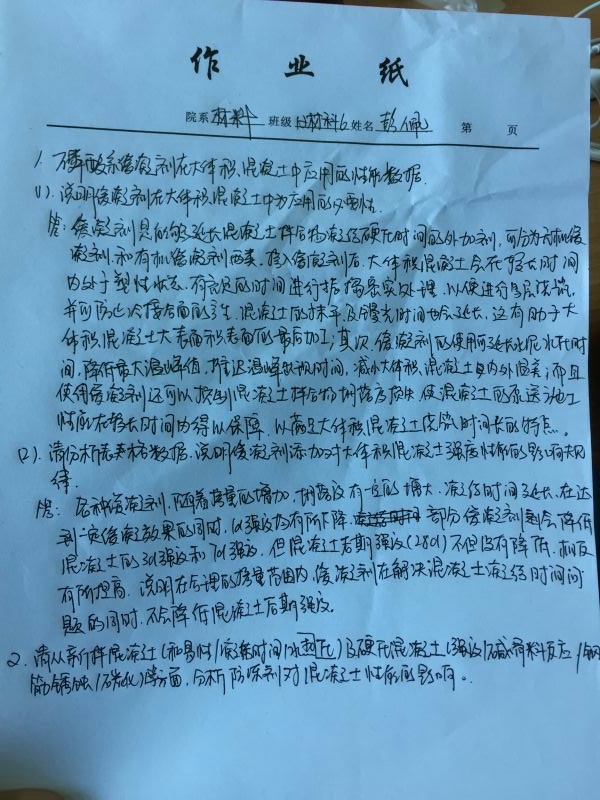 作 业 纸
院系 材料 班级 材料 姓名 彭佩 第 页
1. 不同磷酸系缓凝剂在大体积混凝土中应用的性能数据.
(1). 说明缓凝剂在大体积混凝土中应用的必要性.
答: 缓凝剂是能够延长混凝土拌合物凝结硬化时间的外加剂, 可分为无机缓
凝剂和有机缓凝剂两类. 掺入缓凝剂后, 大体积混凝土会在较长时间
内处于塑性状态, 有充足的时间进行振捣密实处理, 以便进行分层浇筑,
并可防止冷接合面的产生. 混凝土的抹平及合适时间也会延长, 这有助于大
体积混凝土大表面积表面的最后加工; 其次, 缓凝剂的使用可延长水化时
间, 降低最大温峰值, 推迟温峰出现时间, 减小大体积混凝土的内外温差; 而且
使用缓凝剂还可以控制混凝土拌合物坍落度损失, 使混凝土的泵送施工
性能在较长时间内得以保障, 以满足大体积混凝土浇筑时间长的特点.
(2). 请分析表格数据, 说明缓凝剂添加对大体积混凝土强度性能的影响规
律.
答: 各种缓凝剂, 随着掺量的增加, 坍落度有一定的增大, 凝结时间延长, 在达
到一定缓凝效果的同时, 3d强度均有所下降, 部分缓凝剂会降低
混凝土的3d强度和7d强度, 但混凝土后期强度(28d)不但没有降低, 相反
有所提高. 说明在合理的掺量范围内, 缓凝剂在解决混凝土凝结时间问
题的同时, 不会降低混凝土后期强度.
2. 请从新拌混凝土(和易性/凝结时间/水化) 及硬化混凝土(强度/碱骨料反应/钢
筋锈蚀/碳化)等方面, 分析防冻剂对混凝土性能的影响.